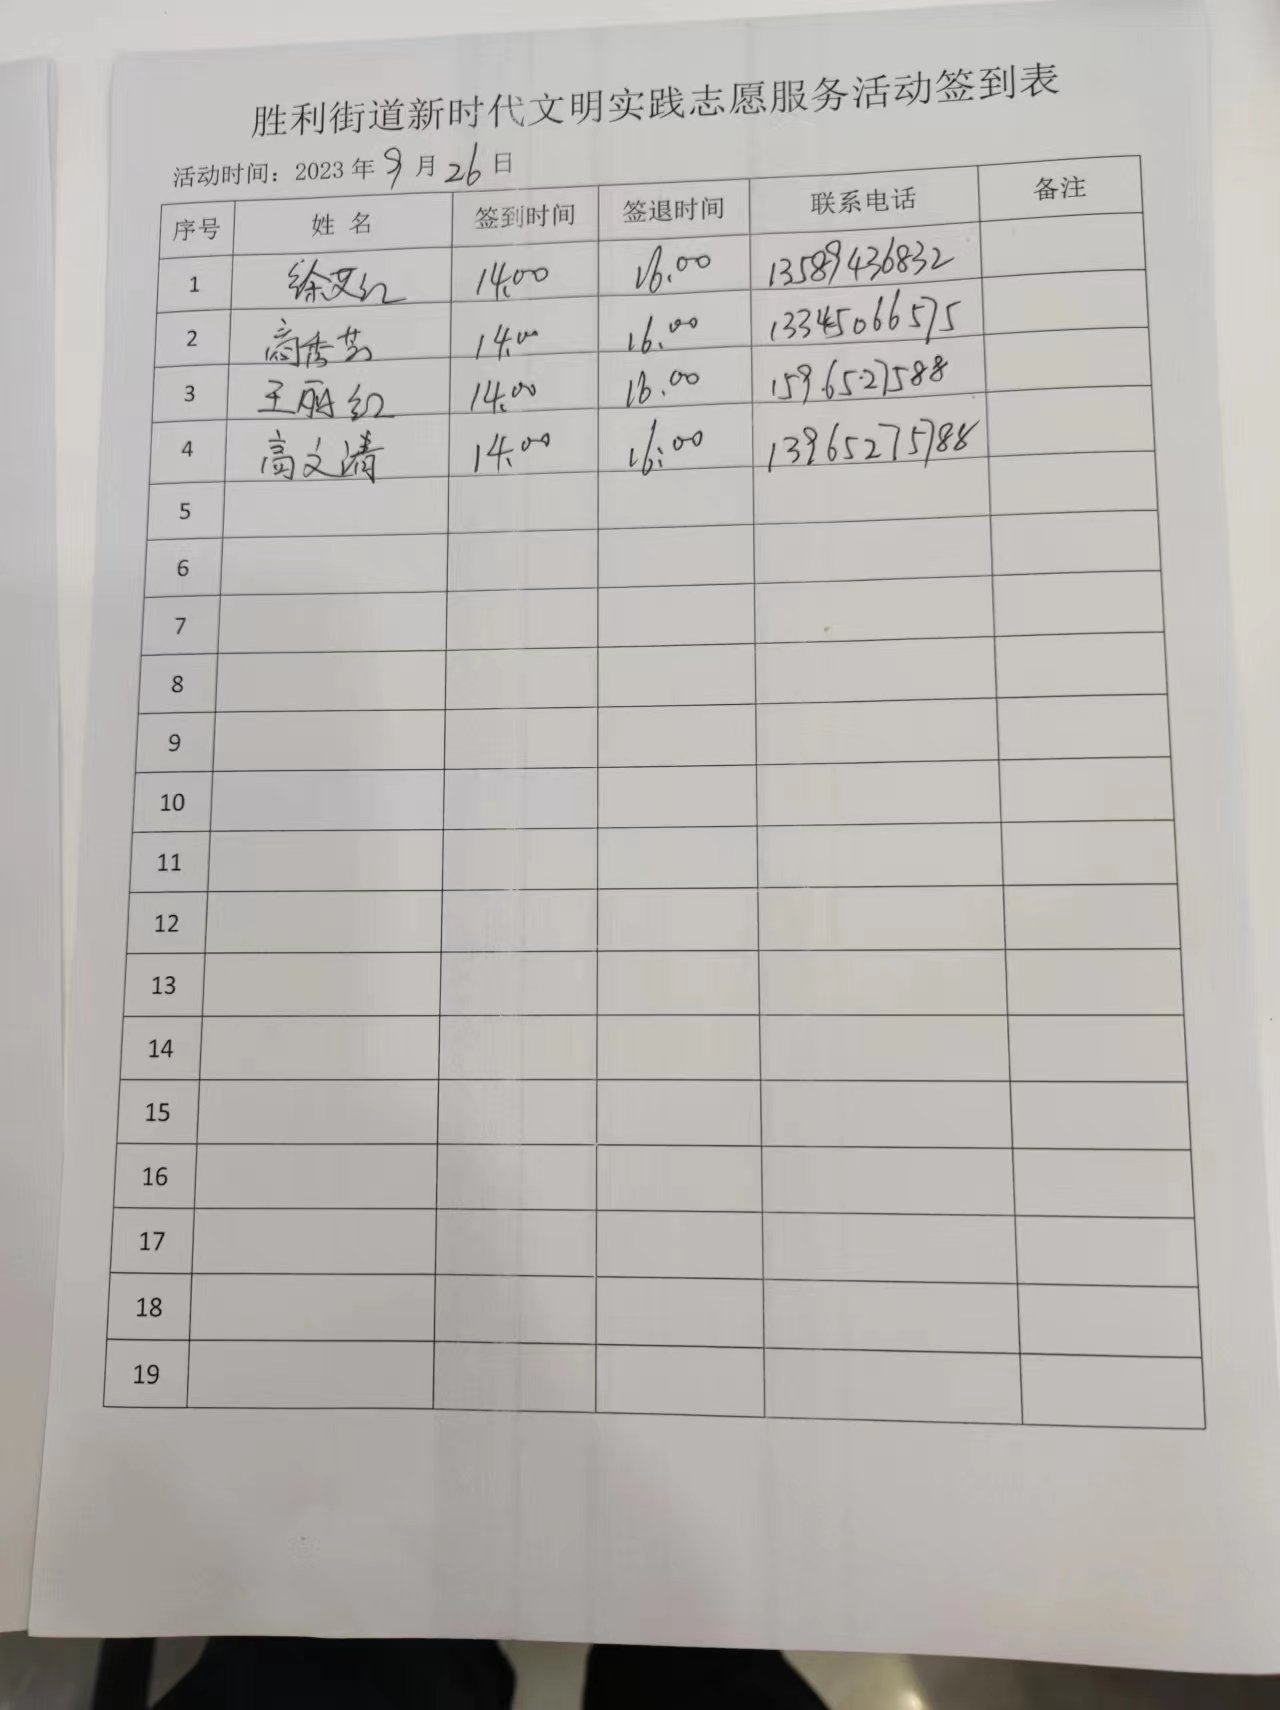 胜利街道新时代文明实践志愿服务活动签到表
活动时间：2023年9月26日
序号 姓 名 签到时间 签退时间 联系电话 备注
1 徐艾红 14:00 16:00 13589436832
2 高秀芸 14:00 16:00 13345066575
3 王丽红 14:00 16:00 15965271588
4 高文清 14:00 16:00 13965275788
5
6
7
8
9
10
11
12
13
14
15
16
17
18
19